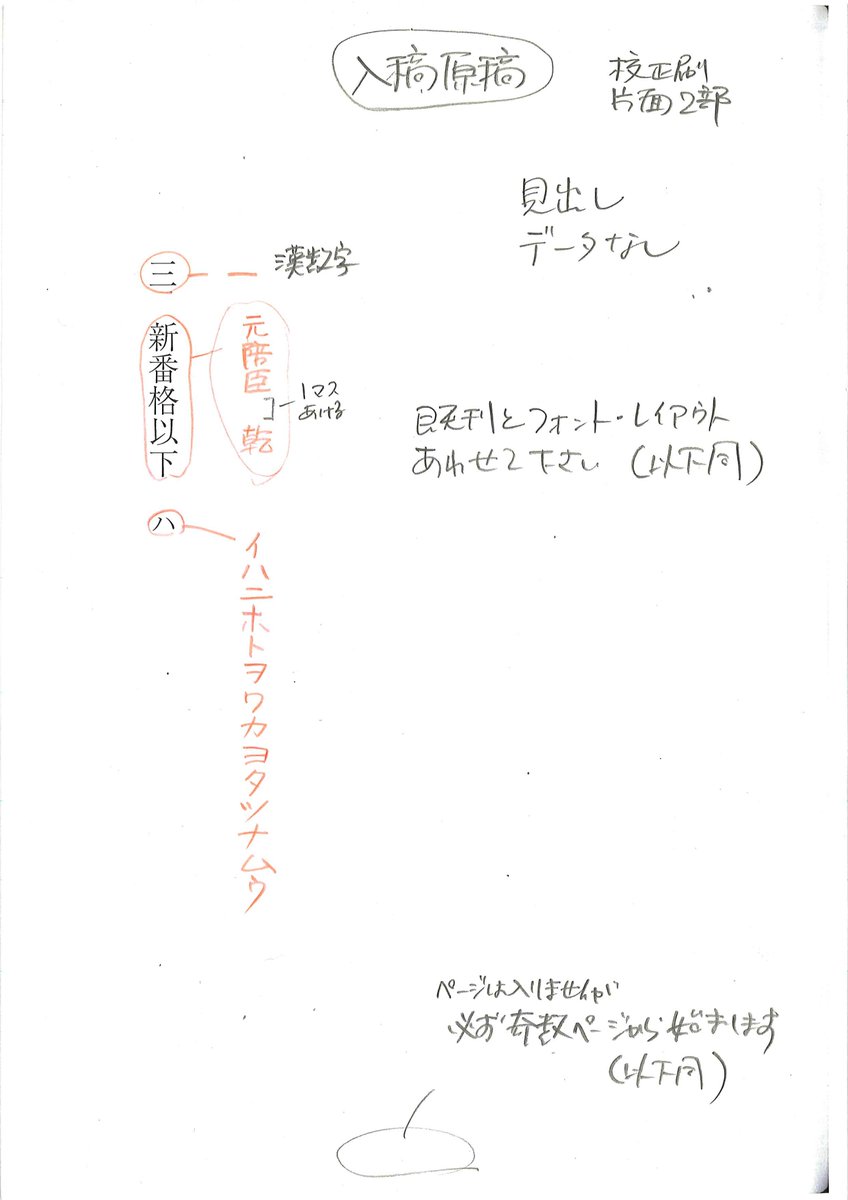 入稿原稿
校正刷
片面2部
見出し
データなし
三
一
漢数字
新番格以下
元陪臣　乾
1マス
あける
既刊とフォント・レイアウト
あわせて下さい（以下同）
ハ
イハニホトヲワカヨタツナムウ
ページは入りませんが
必ず奇数ページから始まります
（以下同）